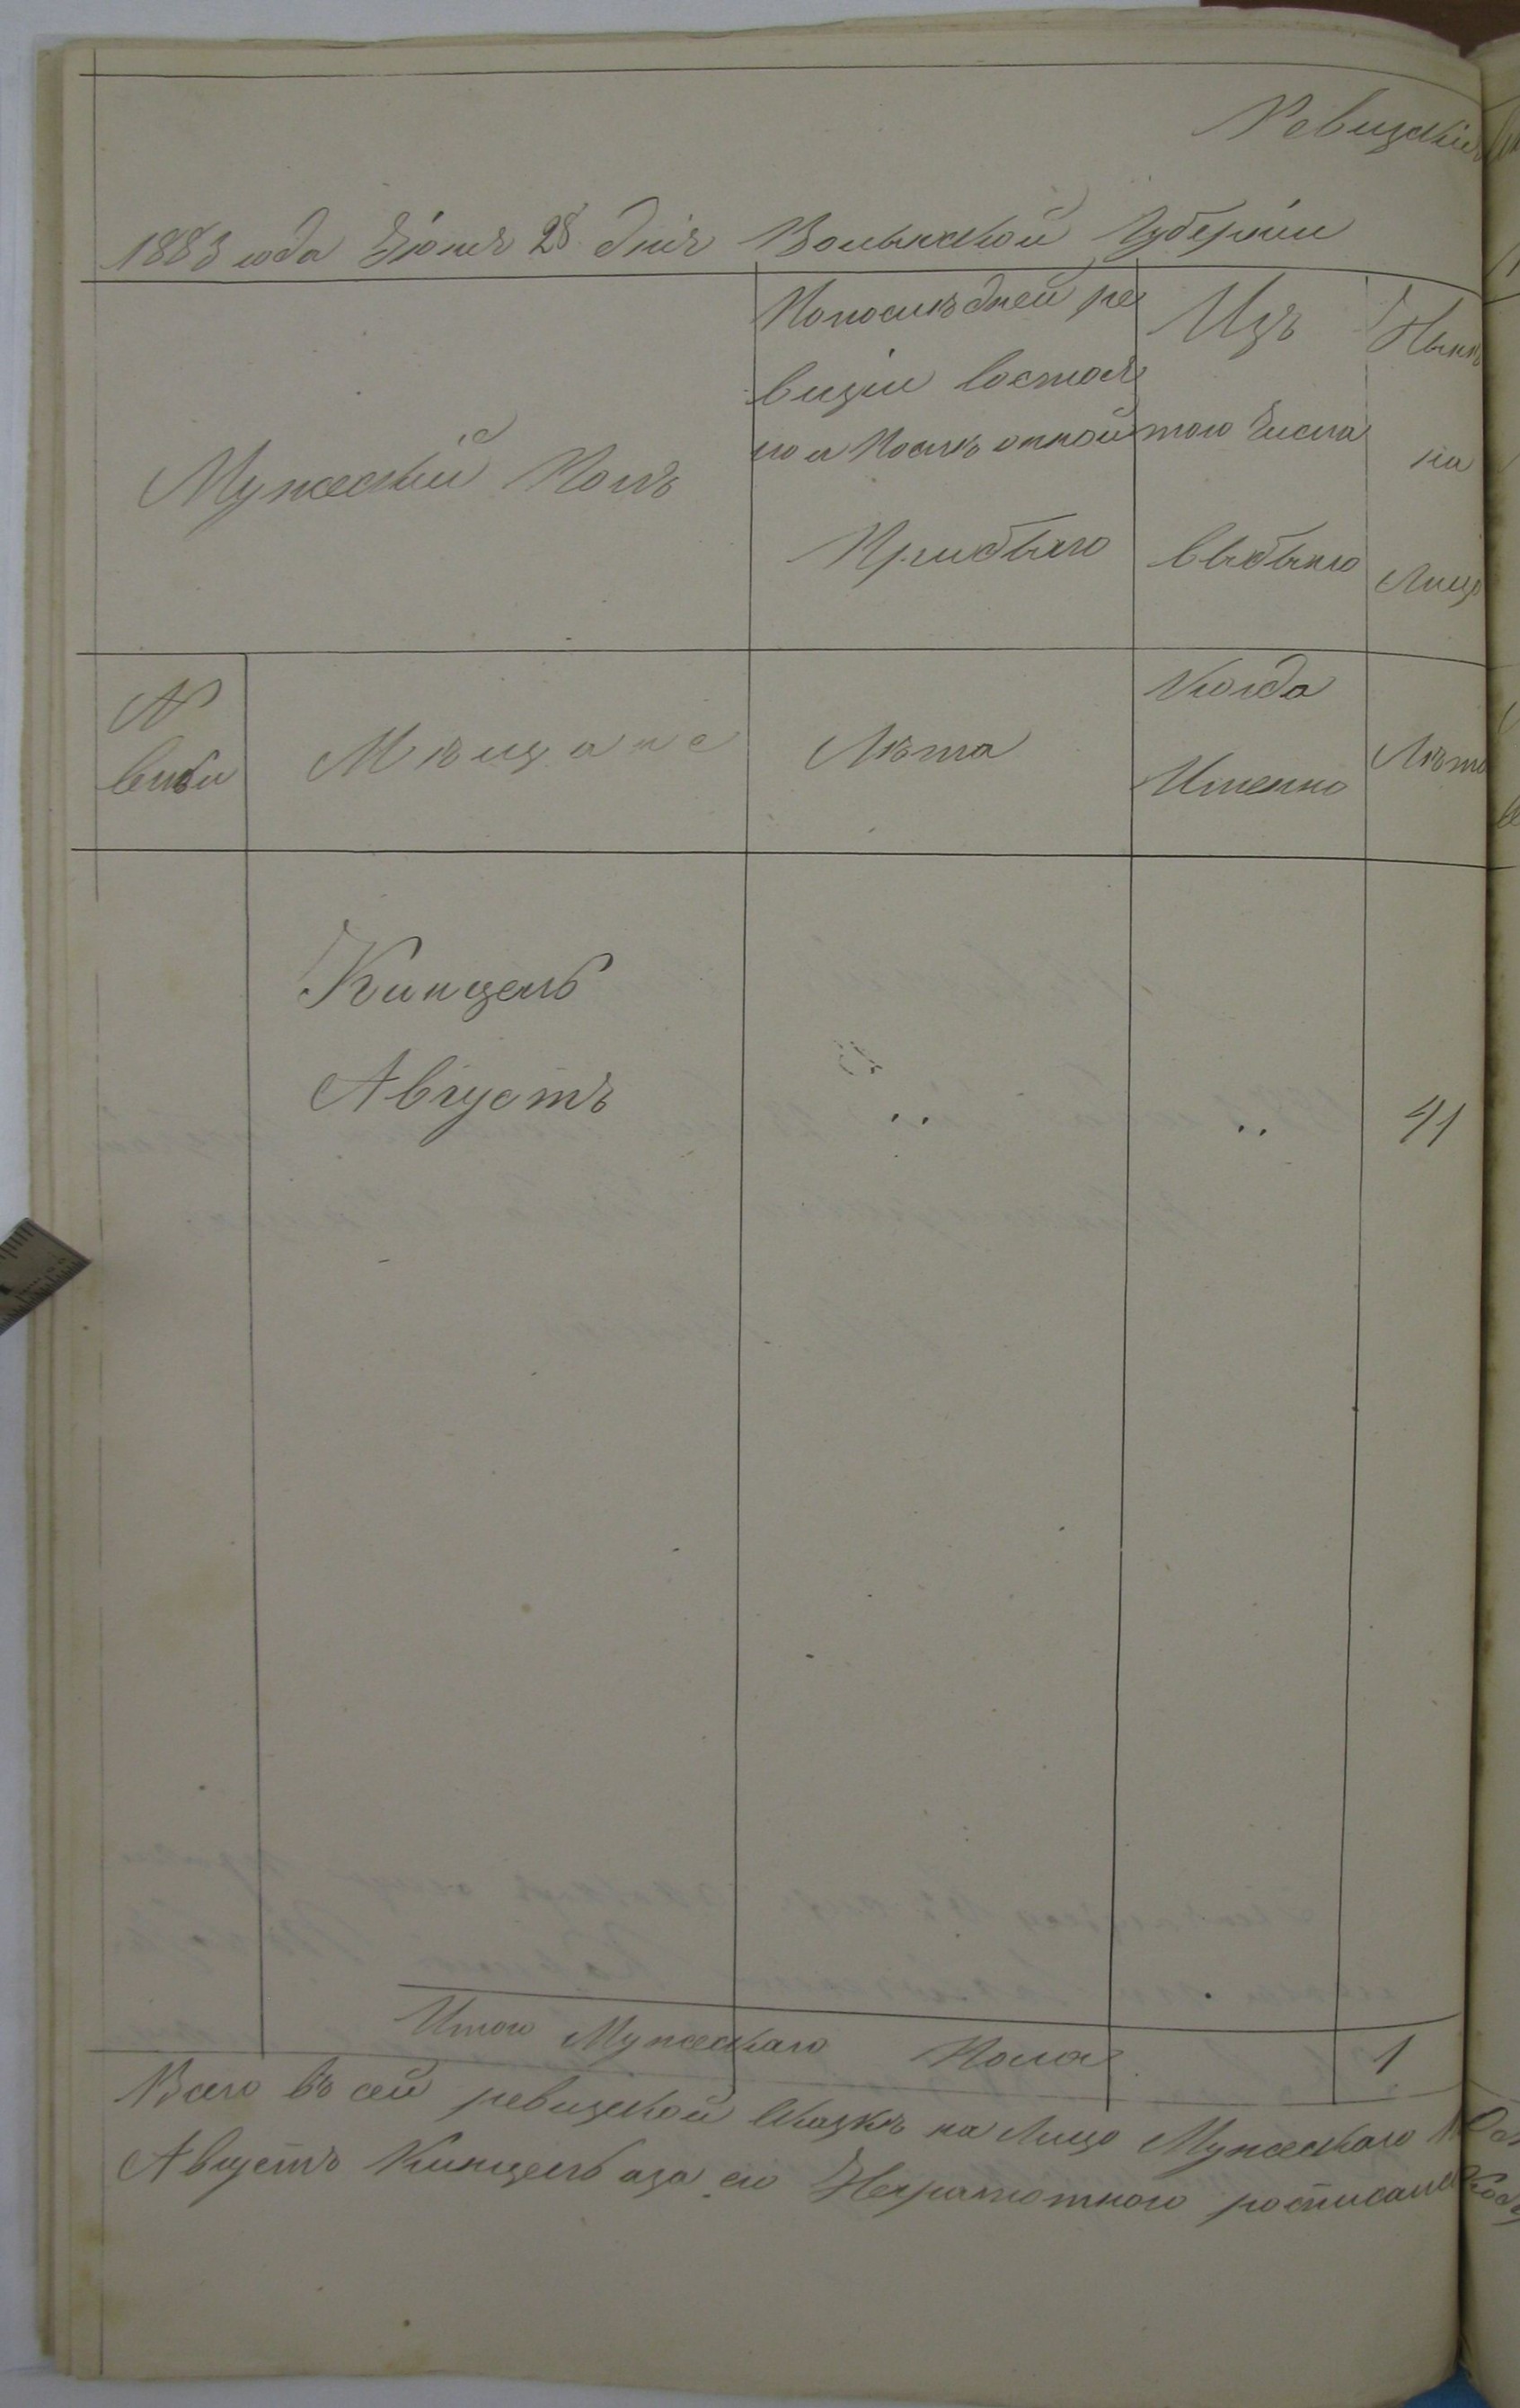 Ревизская
1883 года Іюня 28 дня Волынской Губерніи
Мужескій Полъ
Попослѣдней ре
визіи состоя
ло и Послѣ онной
Прибыло
Изъ
того Числа
выбыло
Нынѣ
на
Лицо
№
семьи
Мѣщане
Лѣта
Когда
Именно
Лѣта
Кинцель
Августъ
"
"
41
Итого Мужескаго Пола
1
Всего въ сей ревизской сказкѣ на Лицо Мужескаго
Августъ Кинцель аза его Неграмотного росписался